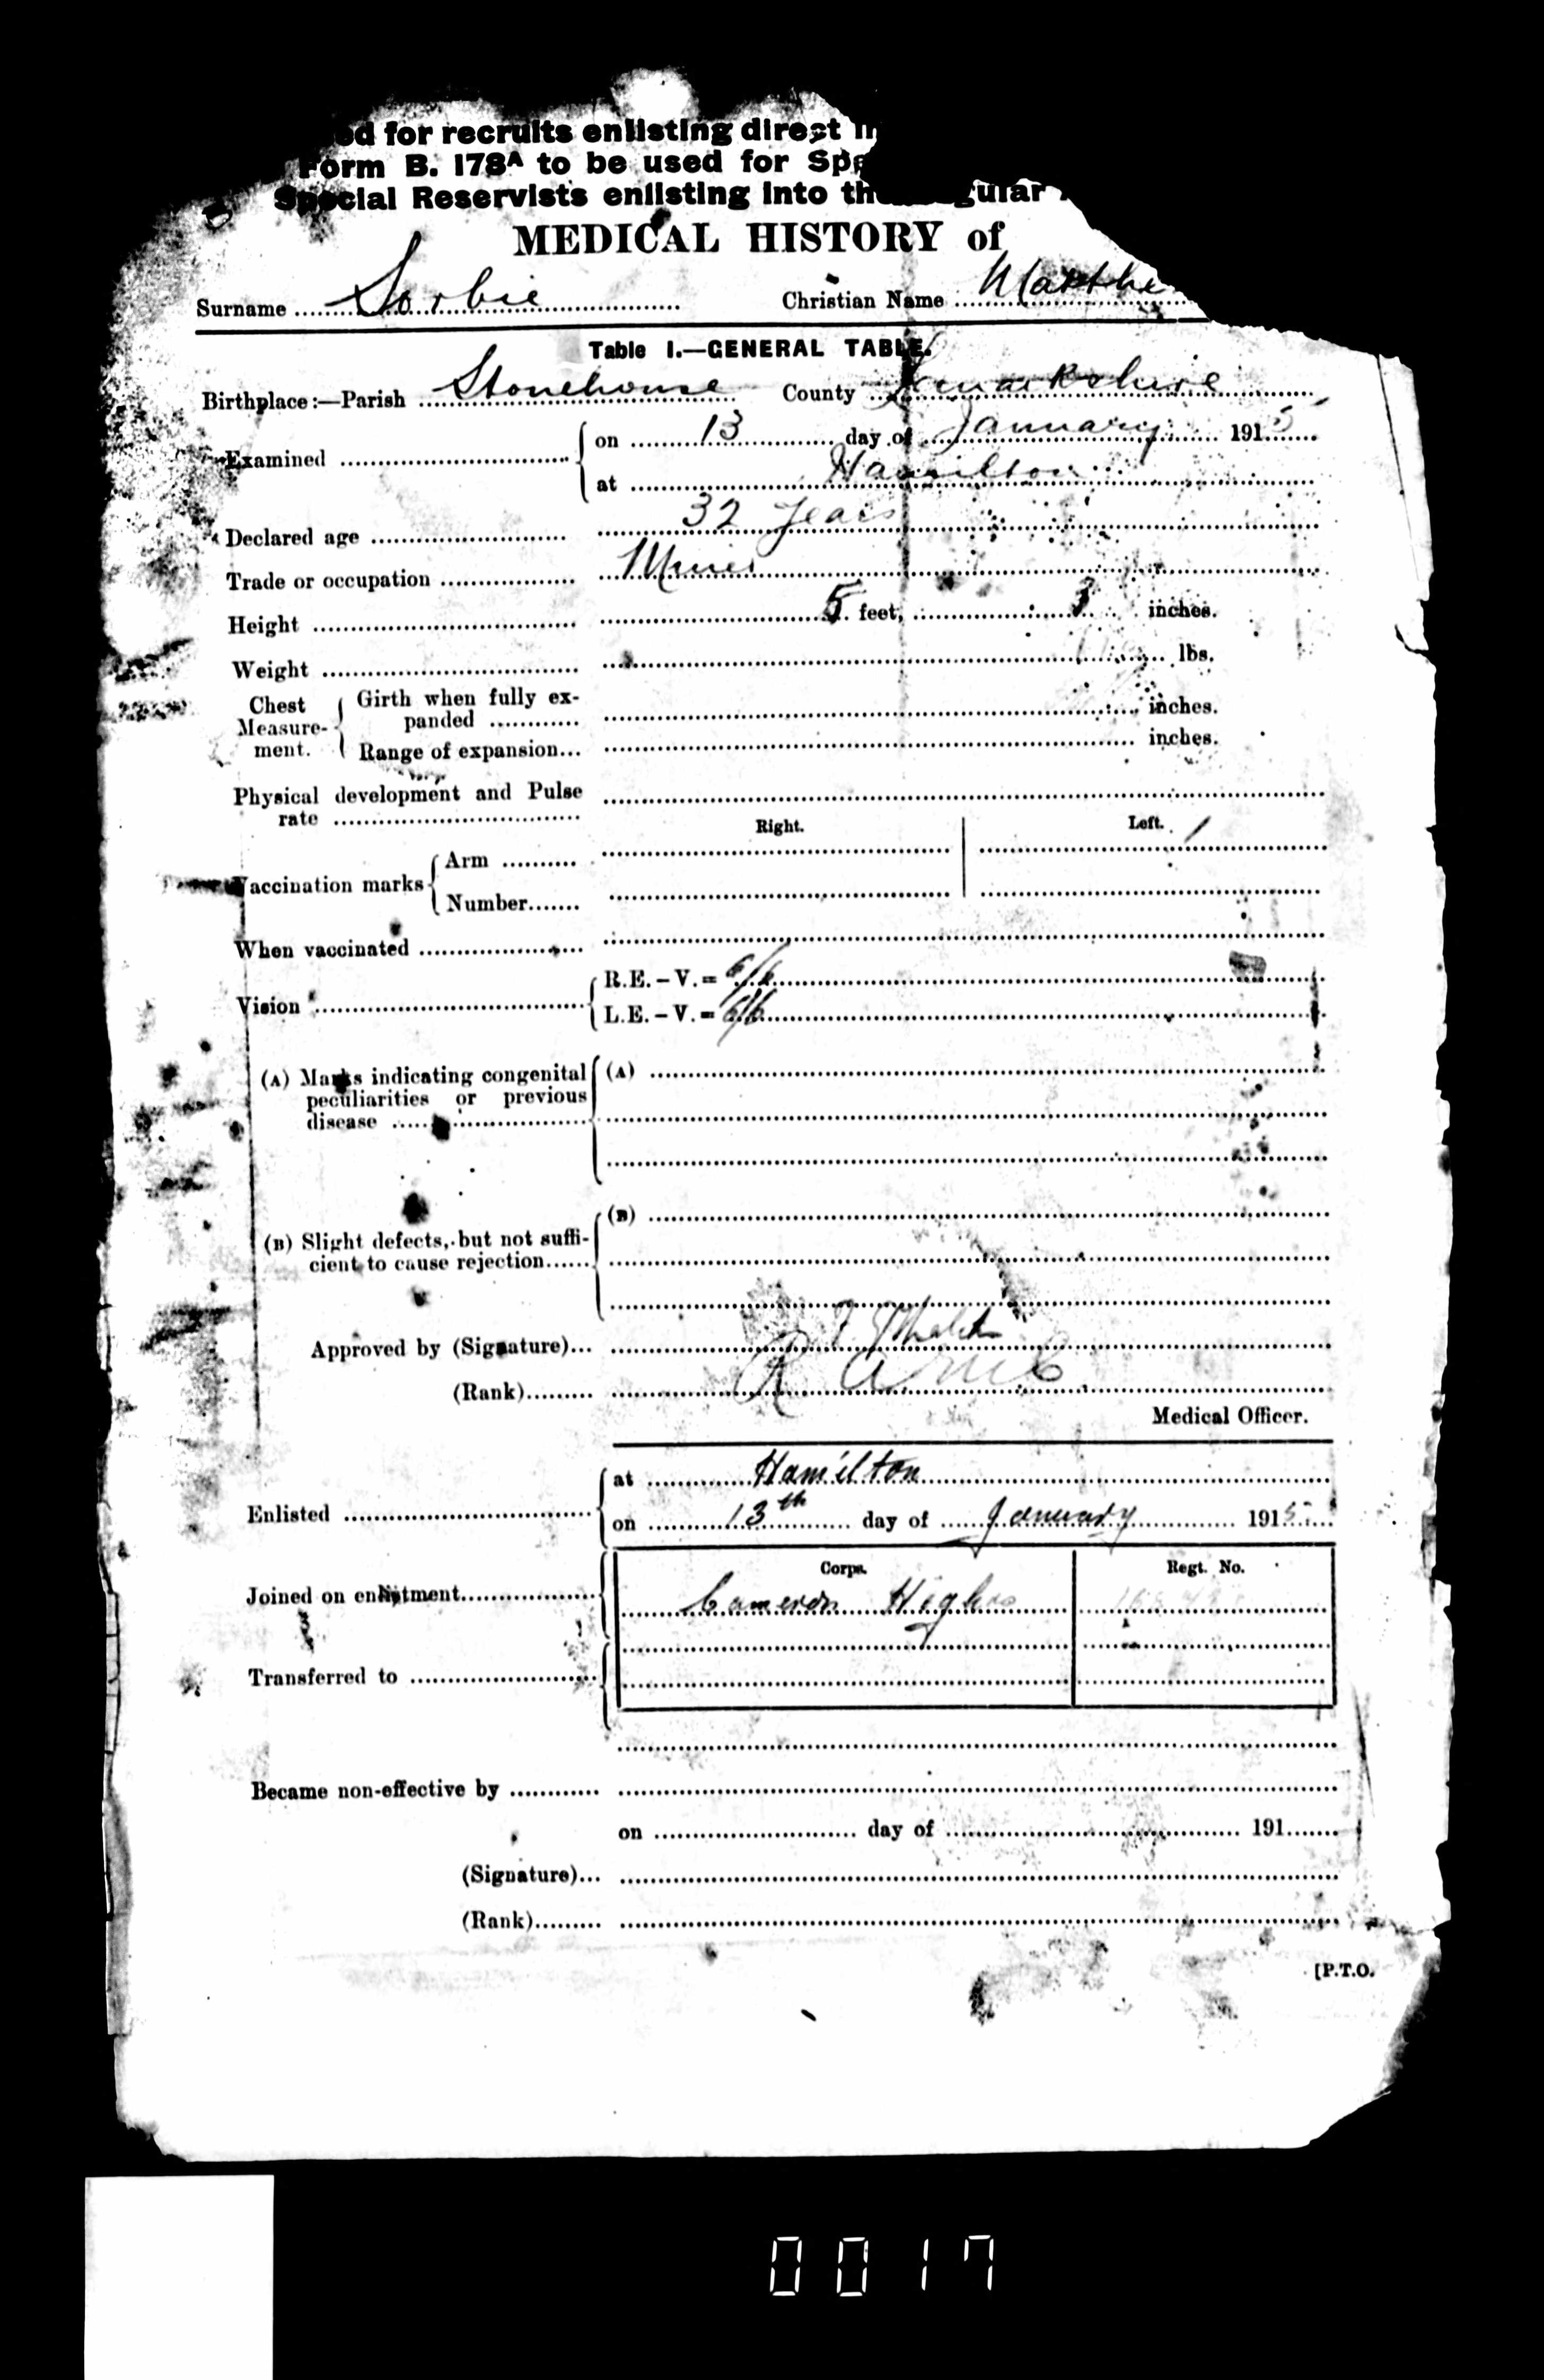 ed for recruits enlisting direct
Form B. 178A to be used for
Special Reservists enlisting into the
MEDICAL HISTORY of
Surname Sorbie Christian Name Matthe
Table I.—GENERAL TABLE.
Birthplace:—Parish Stonehouse County Lanarkshire
Examined on 13 day of January 1915
at Hamilton
Declared age 32 years
Trade or occupation Miner
Height 5 feet, 3 inches.
Weight lbs.
Chest Measurement. Girth when fully expanded inches.
Range of expansion... inches.
Physical development and Pulse rate
Right. Left.
Vaccination marks Arm
Number
When vaccinated
Vision R.E.–V.= 6/6
L.E.–V.= 6/6
(A) Marks indicating congenital (A)
peculiarities or previous
disease
(B)
(B) Slight defects, but not suffi-
cient to cause rejection
Approved by (Signature)...
(Rank) R A M C
Medical Officer.
Enlisted at Hamilton
on 13th day of January 1915
Corps. Regt. No.
Joined on enlistment Cameron Highrs
Transferred to
Became non-effective by
on day of 191
(Signature)...
(Rank)
[P.T.O.
0017